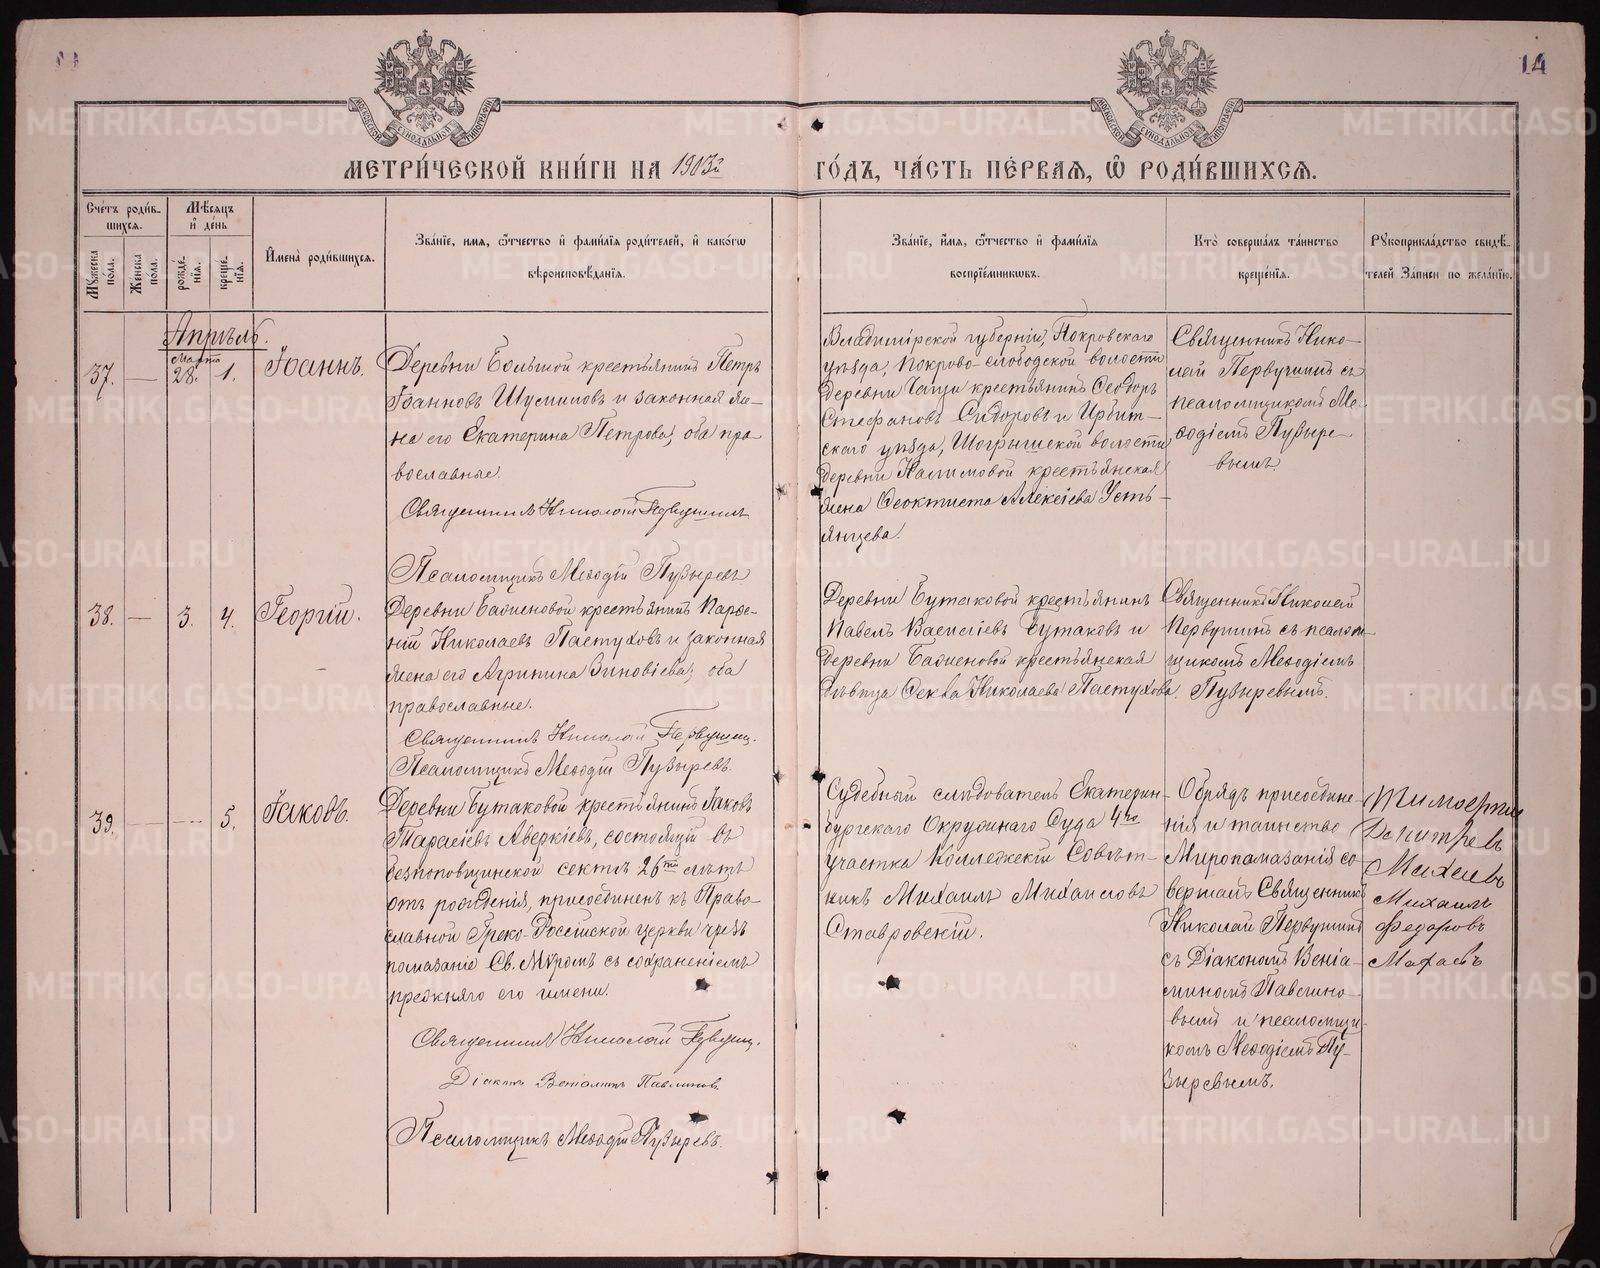 14
МЕТРИ́ЧЕСКОЙ КНИ́ГИ НА 1903й ГО́ДЪ, ЧА́СТЬ ПЕ́РВАЯ, Ѡ҆ РОДИ́ВШИХСЯ.
Сче́тъ роди́в-
шихся.
Мужеска по́ла.
Же́нска по́ла.
Мѣ́сяцъ
и҆ де́нь
рожде́-
нїя.
креще́-
нїя.
И҆мена̀ роди́вшихся.
Зва́нїе, и́мя, ѻ҆́тчество и҆ фами́лїя роди́телей, и҆ како́гѡ
вѣроисповѣ́данїя.
Зва́нїе, и́мя, ѻ҆́тчество и҆ фами́лїя
воспрїе́мниковъ.
Кто̀ соверша́лъ та́инство
креще́нїя.
Рукоприкла́дство свидѣ́-
телей За́писи по жела́нїю.
Апрѣль.
37.
—
Марта
28.
1.
Іоаннъ.
Деревни Большой крестьянинъ Петръ
Іоанновъ Шуминовъ и законная же-
на его Екатерина Петрова, оба пра-
вославные.
Священникъ Николай Первушинъ
Псаломщикъ Меѳодій Пузыревъ
Владимірской губерніи, Покровскаго
уѣзда, Покрово-слободской волости
деревни крестьянинъ Ѳеодоръ
Стефановъ Сидоровъ и Ирбит-
скаго уѣзда, Шогрышской волости
деревни Налимовой крестьянская
жена Ѳеоктиста Алексіева Усть-
янцева.
Священникъ Нико-
лай Первушинъ съ
псаломщикомъ Ме-
ѳодіемъ Пузыре-
вымъ.
38.
—
3.
4.
Георгій.
Деревни крестьянинъ Парѳе-
ній Николаевъ Пастуховъ и законная
жена его Агрипина Зиновіева, оба
православные.
Священникъ Николай Первушинъ.
Псаломщикъ Меѳодій Пузыревъ.
Деревни Бутаковой крестьянинъ
Павелъ Василіевъ Бутаковъ и
деревни крестьянская
дѣвица Ѳекла Николаева Пастухова.
Священникъ Николай
Первушинъ съ псалом-
щикомъ Меѳодіемъ
Пузыревымъ.
39.
—
—
5.
Іаковъ.
Деревни Бутаковой крестьянинъ Іаковъ
Тарасіевъ Аверкіевъ, состоящій въ
безпоповщинской сектѣ 26ти лѣтъ
отъ рожденія, присоединенъ къ Право-
славной Греко-Россійской церкви чрезъ
помазаніе Св. Мѵромъ съ сохраненіемъ
прежняго его имени.
Священникъ Николай Первушинъ.
Діаконъ Веніаминъ Павлиновъ
Псаломщикъ Меѳодій Пузыревъ.
Судебный слѣдователь Екатерин-
бургскаго Окружнаго Суда 4го
участка Коллежскій Совѣт-
никъ Михаилъ Михаиловъ
Ставровскій.
Обрядъ присоедине-
нія и таинство
Миропомазанія со-
вершалъ Священникъ
Николай Первушинъ
съ Діакономъ Веніа-
миномъ Павлино-
вымъ и псаломщи-
комъ Меѳодіемъ Пу-
зыревымъ.
Михаилъ
Федоровъ
METRIKI.GASO-URAL.RU